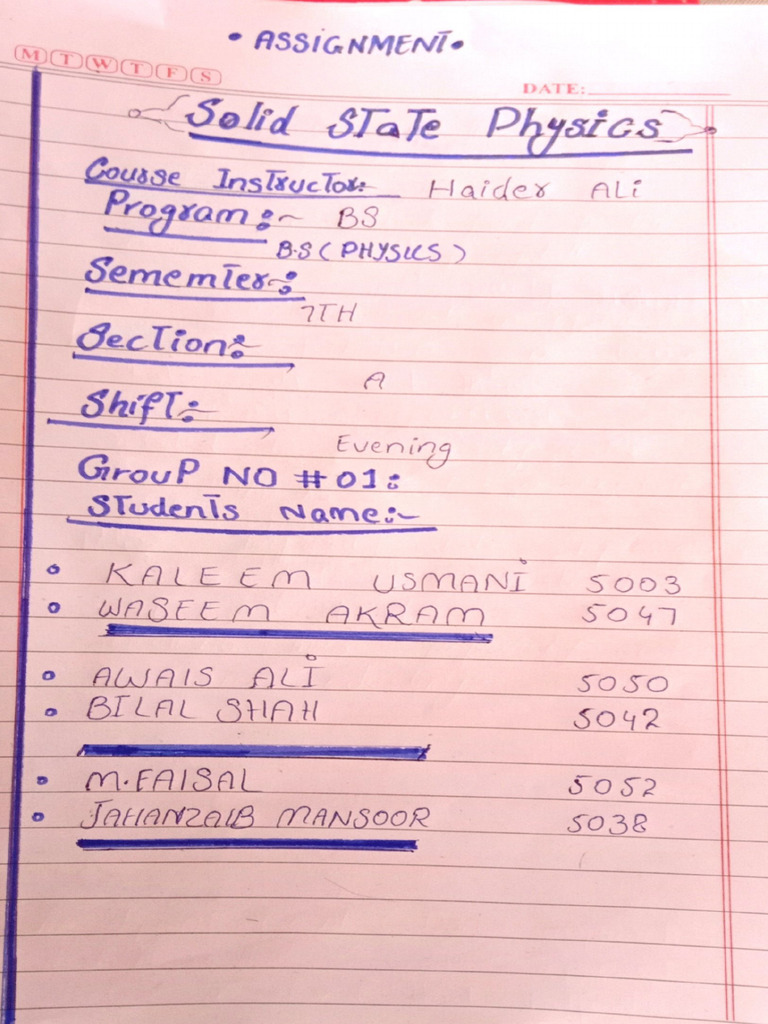 • ASSIGNMENT •
M T W T F S
DATE:
Solid State Physics
Course Instructor:- Haider Ali
Program:- BS
B.S (PHYSICS)
Sememter:-
7TH
Section:-
A
Shift:-
Evening
Group NO # 01:
Students Name:-
• KALEEM USMANI 5003
• WASEEM AKRAM 5047
• AWAIS ALI 5050
• BILAL SHAH 5042
• M.FAISAL 5052
• JAHANZAIB MANSOOR 5038